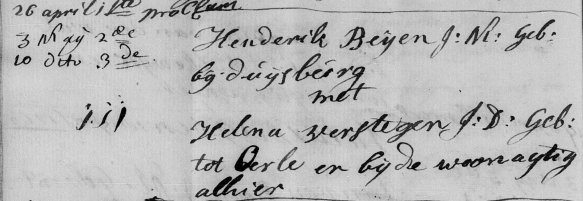 26 april 1ste proclam
3 Meÿ 2de
10 dito 3de
Henderik Beÿen J: M: Geb:
bÿ duÿsberg
met
Helena verstegen J: D: Geb:
tot Oerle en bÿde woonagtig
alhier